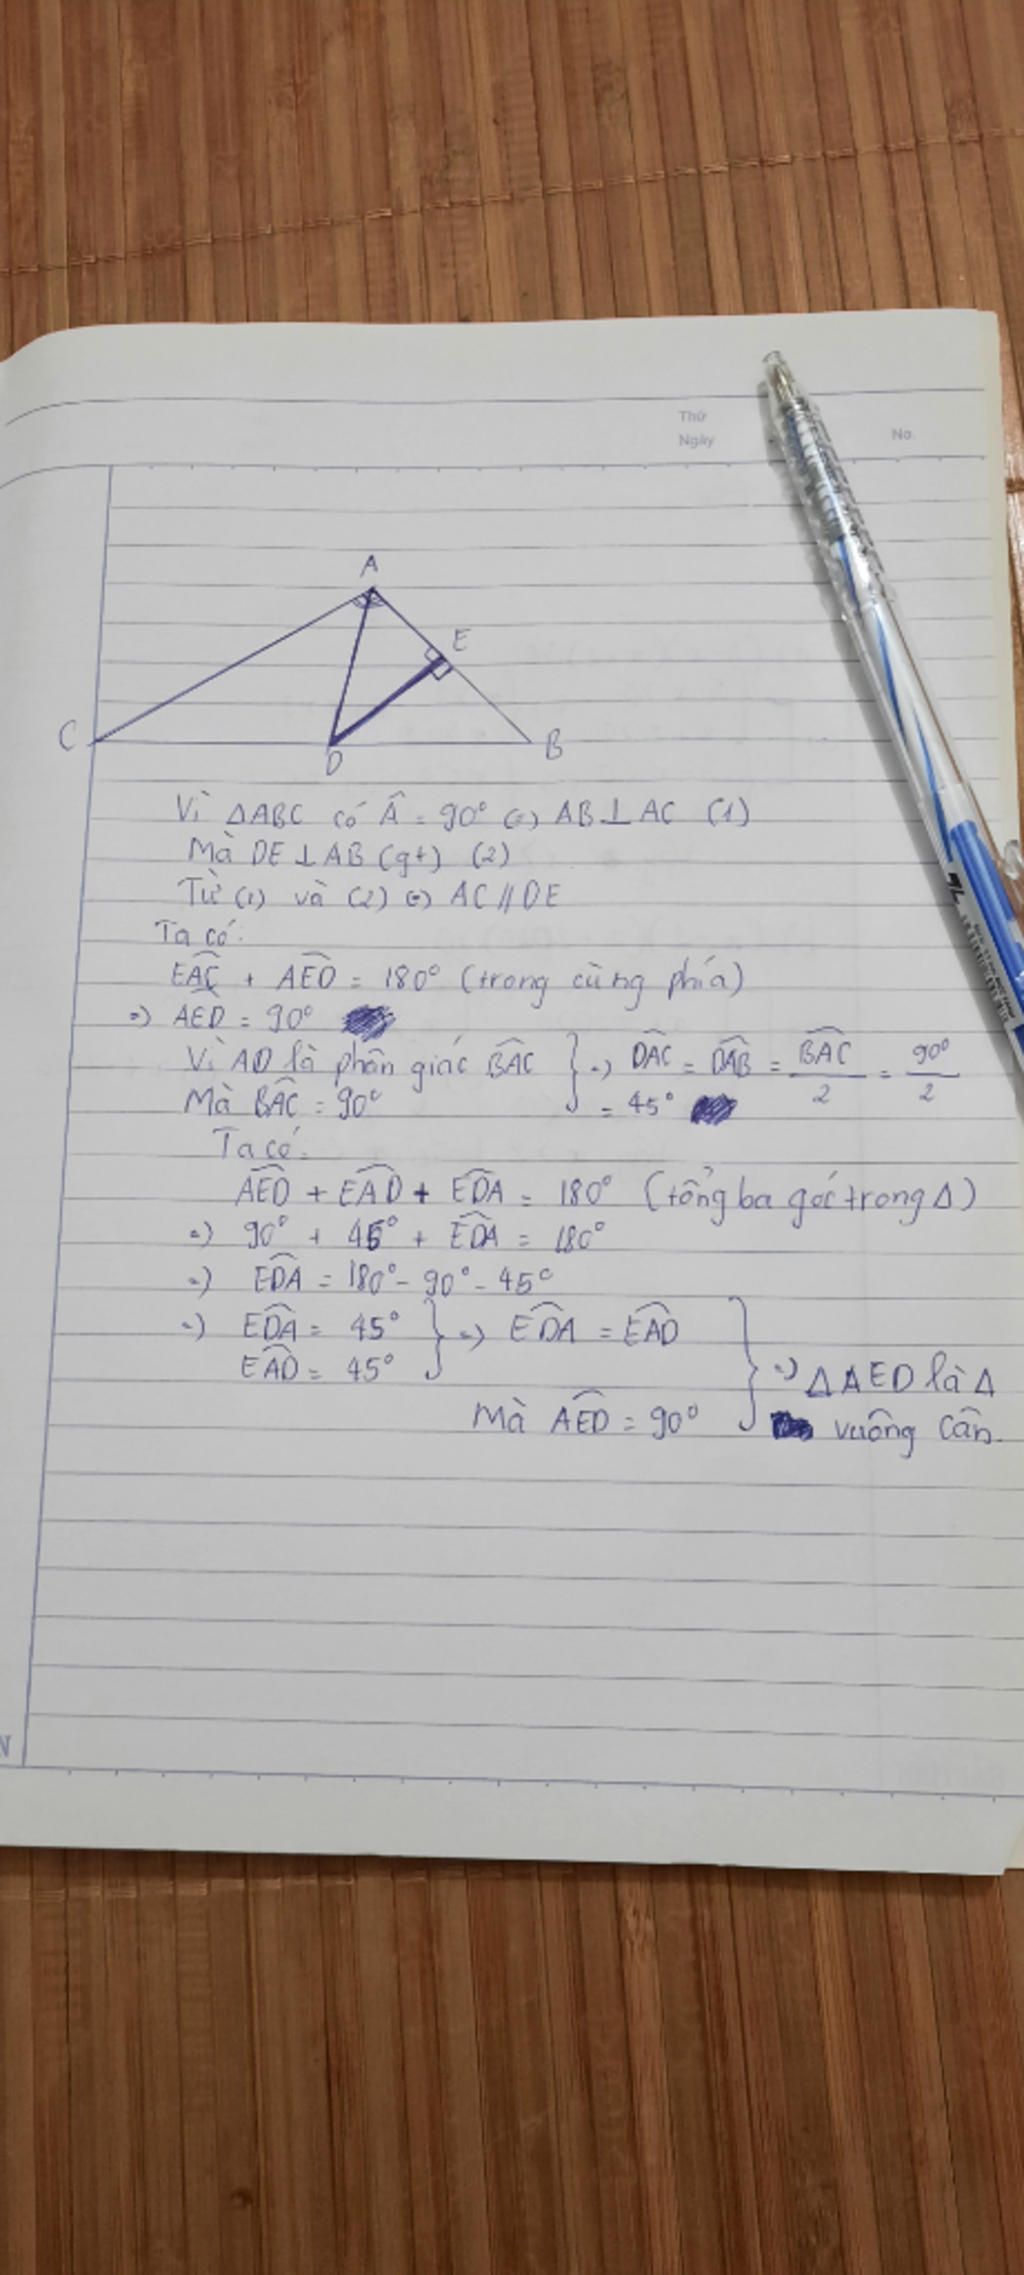 Thứ
Ngày
No.
A
E
C
D
B
Vì ΔABC có Â = 90° => AB⊥AC (1)
Mà DE⊥AB (gt) (2)
Từ (1) và (2) => AC // DE
Ta có:
EAC + AED = 180° (trong cùng phía)
=> AED = 90°
Vì AD là phân giác BAC } => DAC = DAB = BAC/2 = 90°/2
Mà BAC = 90° = 45°
Ta có:
AED + EAD + EDA = 180° (tổng ba góc trong Δ)
=> 90° + 45° + EDA = 180°
=> EDA = 180° - 90° - 45°
=> EDA = 45° } => EDA = EAD
EAD = 45° } => Δ AED là Δ
Mà AED = 90° vuông cân.
N